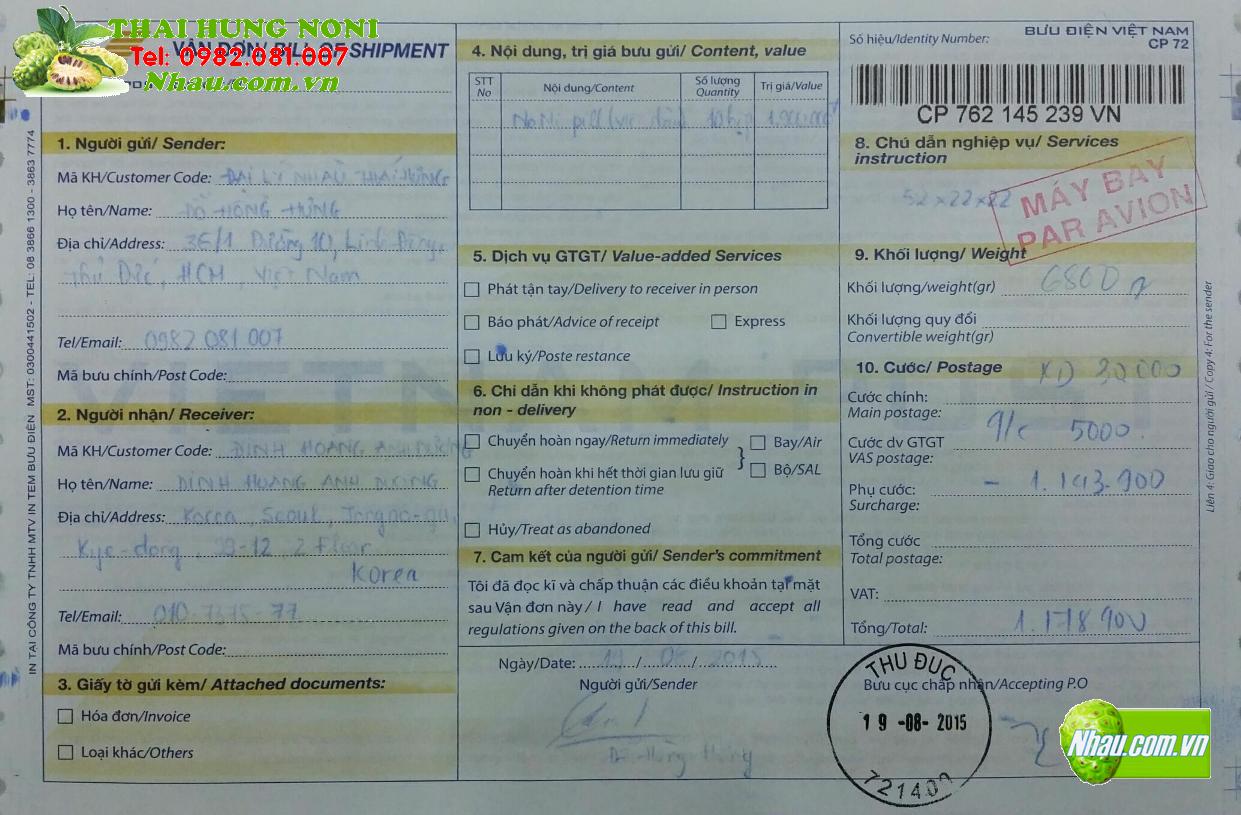 THAI HUNG NONI
Tel: 0982.081.007
Nhau.com.vn
VẬN ĐƠN/ BILL OF SHIPMENT
BƯU ĐIỆN VIỆT NAM
CP 72
Số hiệu/Identity Number:
CP 762 145 239 VN
IN TẠI CÔNG TY TNHH MTV IN TEM BƯU ĐIỆN MST: 0300441502 - TEL: 08 3866 1300 - 3863 7774
1. Người gửi/ Sender:
Mã KH/Customer Code: ĐẠI LÝ NHÀU THÁI HƯNG
Họ tên/Name: ĐỖ HỒNG HƯNG
Địa chỉ/Address: 36/1 Đường 10, Linh Đông,
Thủ Đức, HCM, Việt Nam
Tel/Email: 0982 081 007
Mã bưu chính/Post Code:
2. Người nhận/ Receiver:
Mã KH/Customer Code: ĐINH HOANG ANH DUONG
Họ tên/Name: ĐINH HOANG ANH DUONG
Địa chỉ/Address: Korea, Seoul, Jongno-gu,
2 Floor
Korea
Tel/Email: 010-7375-77
Mã bưu chính/Post Code:
3. Giấy tờ gửi kèm/ Attached documents:
Hóa đơn/Invoice
Loại khác/Others
4. Nội dung, trị giá bưu gửi/ Content, value
STT No
Nội dung/Content
Số lượng Quantity
Trị giá/Value
NoNi 10
5. Dịch vụ GTGT/ Value-added Services
Phát tận tay/Delivery to receiver in person
Báo phát/Advice of receipt
Express
Lưu ký/Poste restance
6. Chỉ dẫn khi không phát được/ Instruction in
non - delivery
Chuyển hoàn ngay/Return immediately
Bay/Air
Chuyển hoàn khi hết thời gian lưu giữ
Return after detention time
Bộ/SAL
Hủy/Treat as abandoned
7. Cam kết của người gửi/ Sender's commitment
Tôi đã đọc kĩ và chấp thuận các điều khoản tại mặt
sau Vận đơn này / I have read and accept all
regulations given on the back of this bill.
Ngày/Date: 19/ 08 / 2015
Người gửi/Sender
Đỗ Hồng Hưng
8. Chú dẫn nghiệp vụ/ Services
instruction
52 x 22 x 22
MÁY BAY
PAR AVION
9. Khối lượng/ Weight
Khối lượng/weight(gr) 6800 g
Khối lượng quy đổi
Convertible weight(gr)
10. Cước/ Postage XD 30000
Cước chính:
Main postage:
5000
Cước dv GTGT
VAS postage:
Phụ cước: - 1.143.900
Surcharge:
Tổng cước
Total postage:
VAT:
Tổng/Total: 1.178.900
Bưu cục chấp nhận/Accepting P.O
THU ĐUC
19-08-2015
721400
Nhau.com.vn
Liên 4: Giao cho người gửi / Copy 4: For the sender
VIETNAM POST